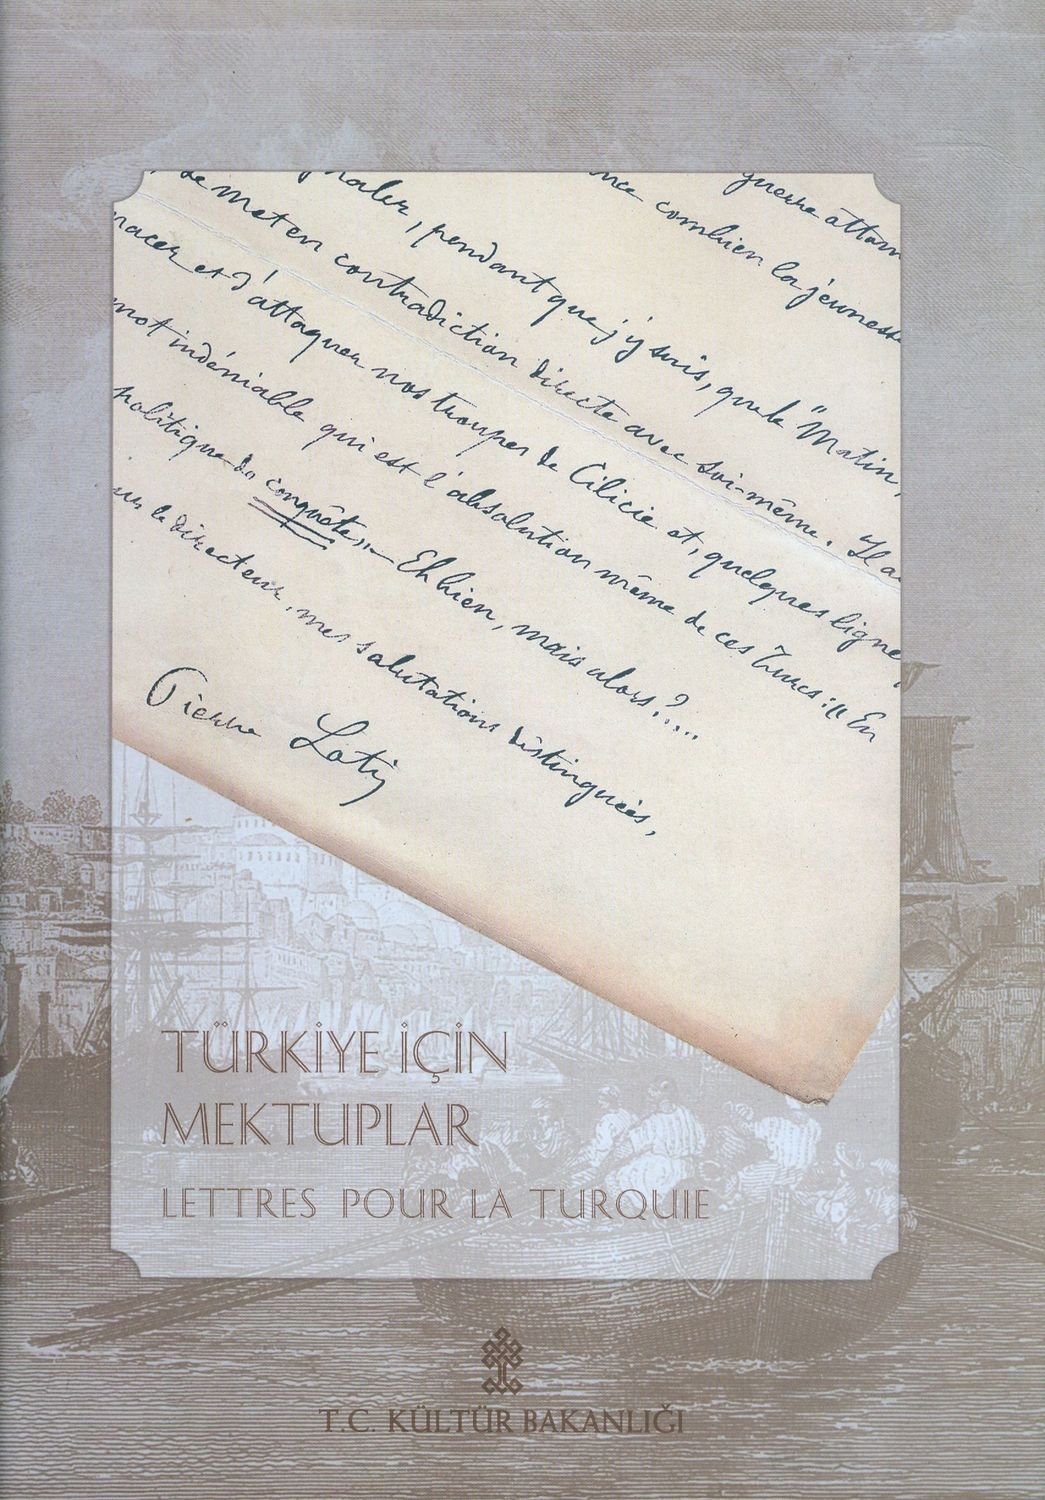 guerre attom
nce combien la jeunesse
naler, pendant que j'y suis, que le "Matin,
se met en contradiction directe avec soi-même. Il a
nacer et d'attaquer nos troupes de Cilicie et, quelques ligne
mot indéniable qui est l'absolution même de ces Turcs : "En
politique de conquête,,— Eh bien, mais alors ?.....
ur le directeur, mes salutations distinguées,
Pierre Loti
TÜRKİYE İÇİN
MEKTUPLAR
LETTRES POUR LA TURQUIE
T.C. KÜLTÜR BAKANLIĞI